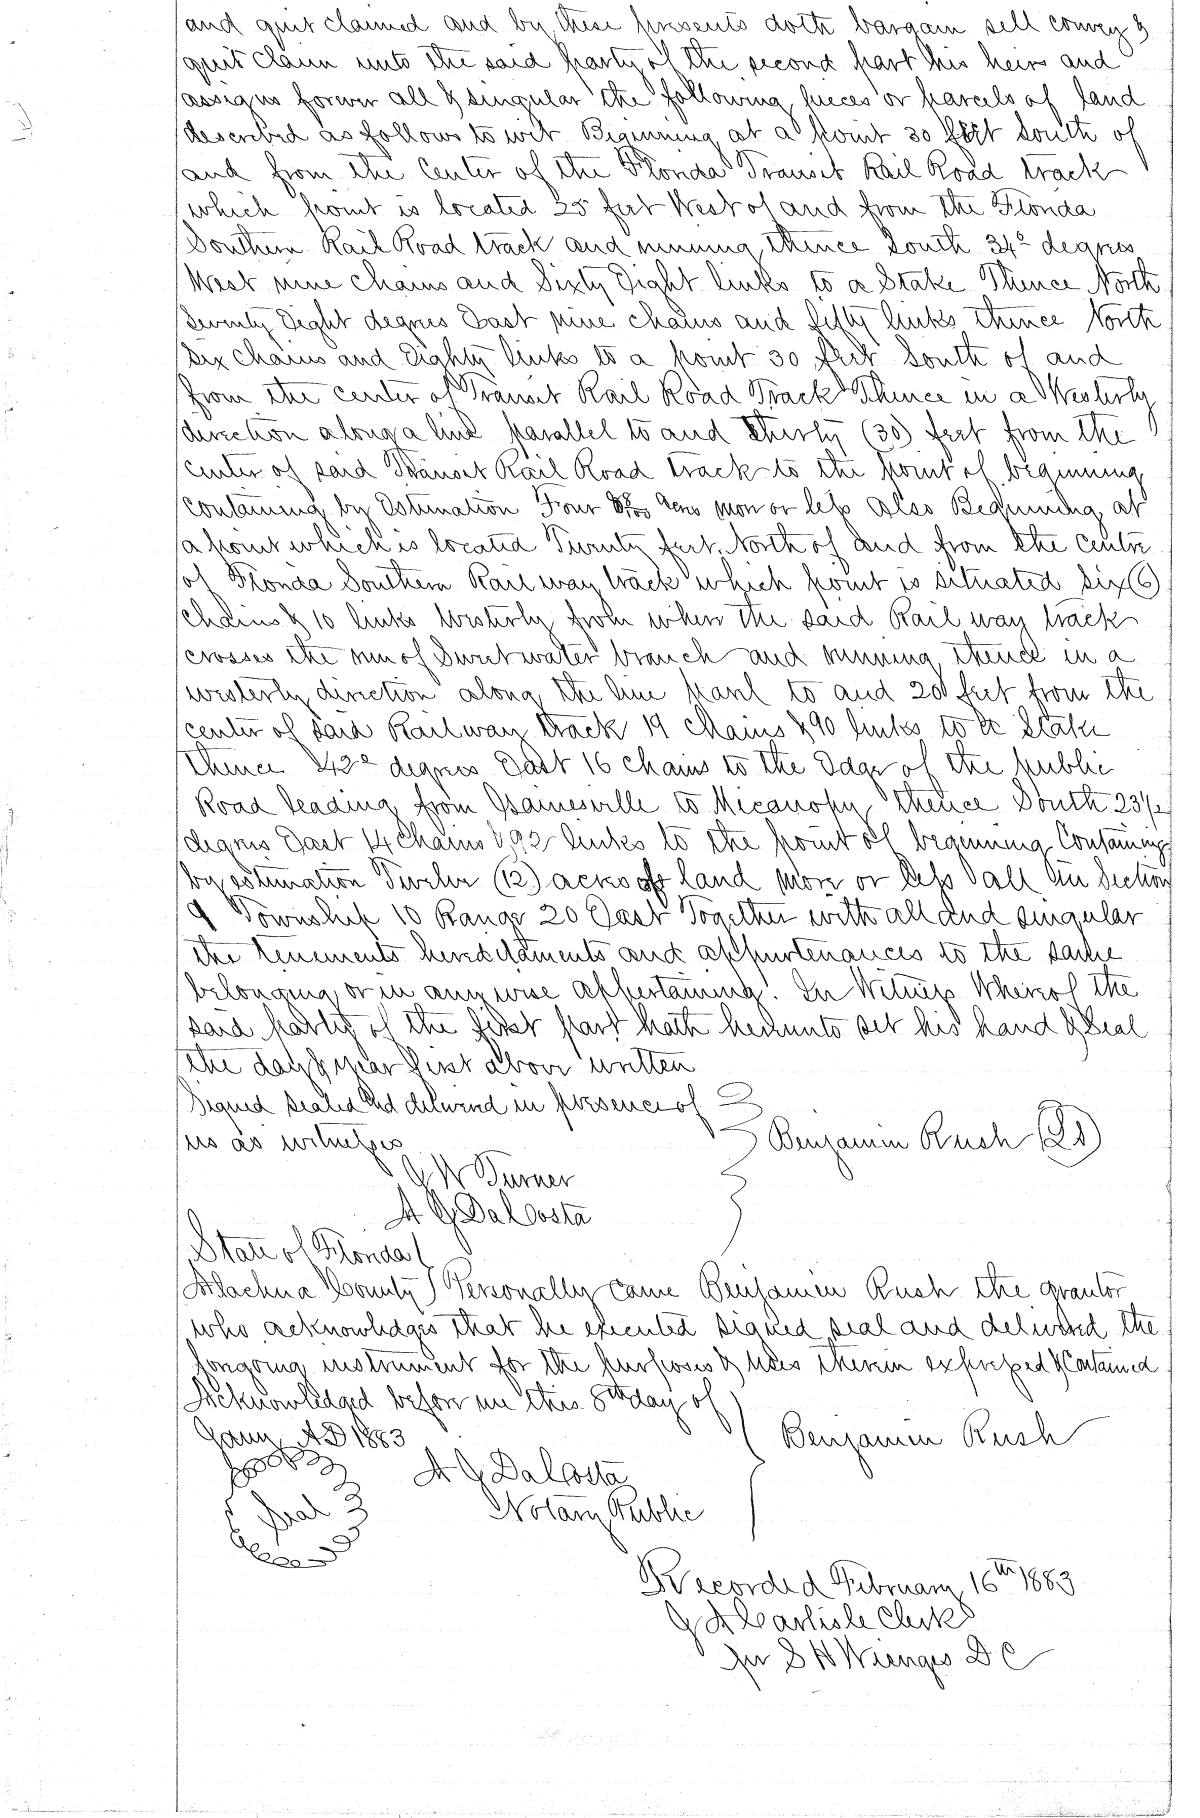 and quit claimed and by these presents doth bargain sell convey &
quit claim unto the said party of the second part his heirs and
assigns forever all & singular the following pieces or parcels of land
described as follows to wit Beginning at a point 30 feet South of
and from the Center of the Florida Transit Rail Road track
which point is located 25 feet West of and from the Florida
Southern Rail Road track and running thence South 34° degrees
West nine chains and Sixty Eight links to a Stake Thence North
Seventy Eight degrees East nine chains and fifty links thence North
Six Chains and Eighty links to a point 30 feet South of and
from the center of Transit Rail Road Track Thence in a Westerly
direction along a line parallel to and thirty (30) feet from the
Center of said Transit Rail Road track to the point of beginning
containing by Estimation Four acres more or less Also Beginning at
a point which is located Twenty feet North of and from the centre
of Florida Southern Rail way track which point is situated six (6)
chains & 10 links Westerly from where the said Rail way track
crosses the run of Sweetwater branch and running thence in a
westerly direction along the line parl to and 20 feet from the
center of said Railway track 19 chains & 90 links to a Stake
thence 42° degrees East 16 chains to the Edge of the public
Road leading from Gainesville to Micanopy thence South 23½
degrees East 14 Chains & 92 links to the point of beginning Containing
by estimation Twelve (12) acres of land more or less all in Section
9 Township 10 Range 20 East Together with all and singular
the tenements hereditaments and appurtenances to the same
belonging or in anywise appertaining. In Witness Whereof the
said party of the first part hath hereunto set his hand & Seal
the day & year first above written
Signed sealed and delivered in presence of
us as witnesses
Benjamin Rush (LS)
J W Turner
A J DaCosta
State of Florida
Alachua County Personally came Benjamin Rush the grantor
who acknowledges that he executed signed seal and delivered the
forgoing instrument for the purposes & uses therein expressed & Contained
Acknowledged before me this 8th day of
Jany AD 1883
Benjamin Rush
Seal
A J DaCosta
Notary Public
Recorded February 16th 1883
J A Carlisle Clerk
per S H Wienges D C